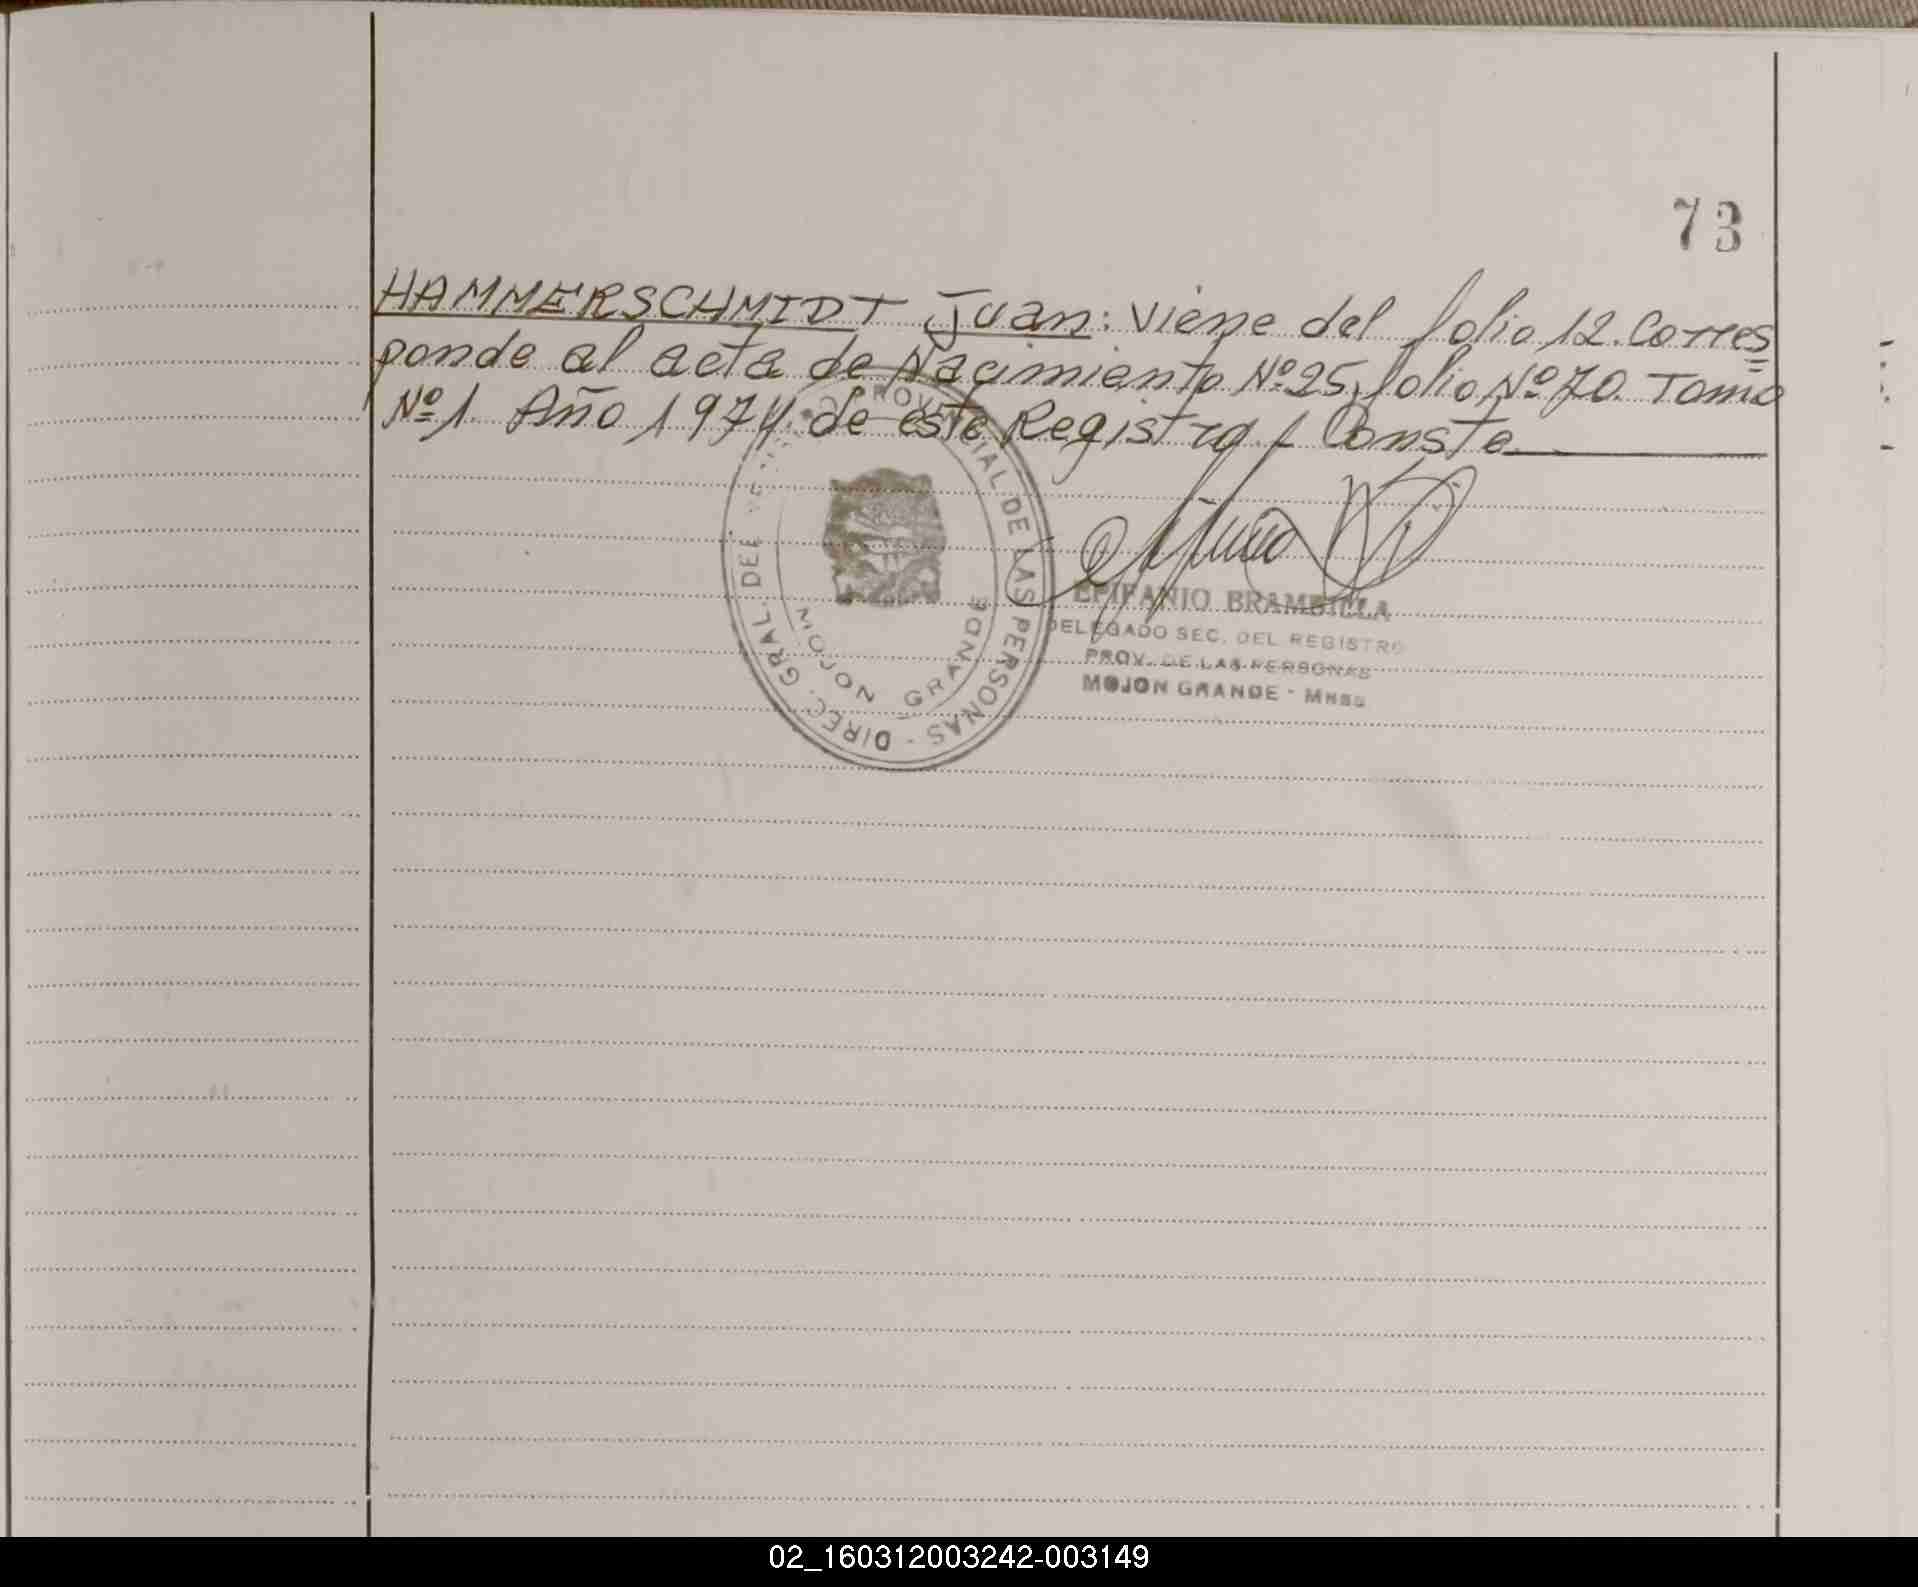 73
HAMMERSCHMIDT Juan: Viene del folio 12. Corres=
ponde al acta de Nacimiento Nº 25, folio Nº 70. Tomo
Nº 1. Año 1974. de este Registro / Conste
DIREC. GRAL. DEL PROVINCIAL DE LAS PERSONAS -
MOJON GRANDE
EPIFANIO BRAMBILLA
DELEGADO SEC. DEL REGISTRO
PROV. DE LAS PERSONAS
MOJON GRANDE - Mnes
02_160312003242-003149